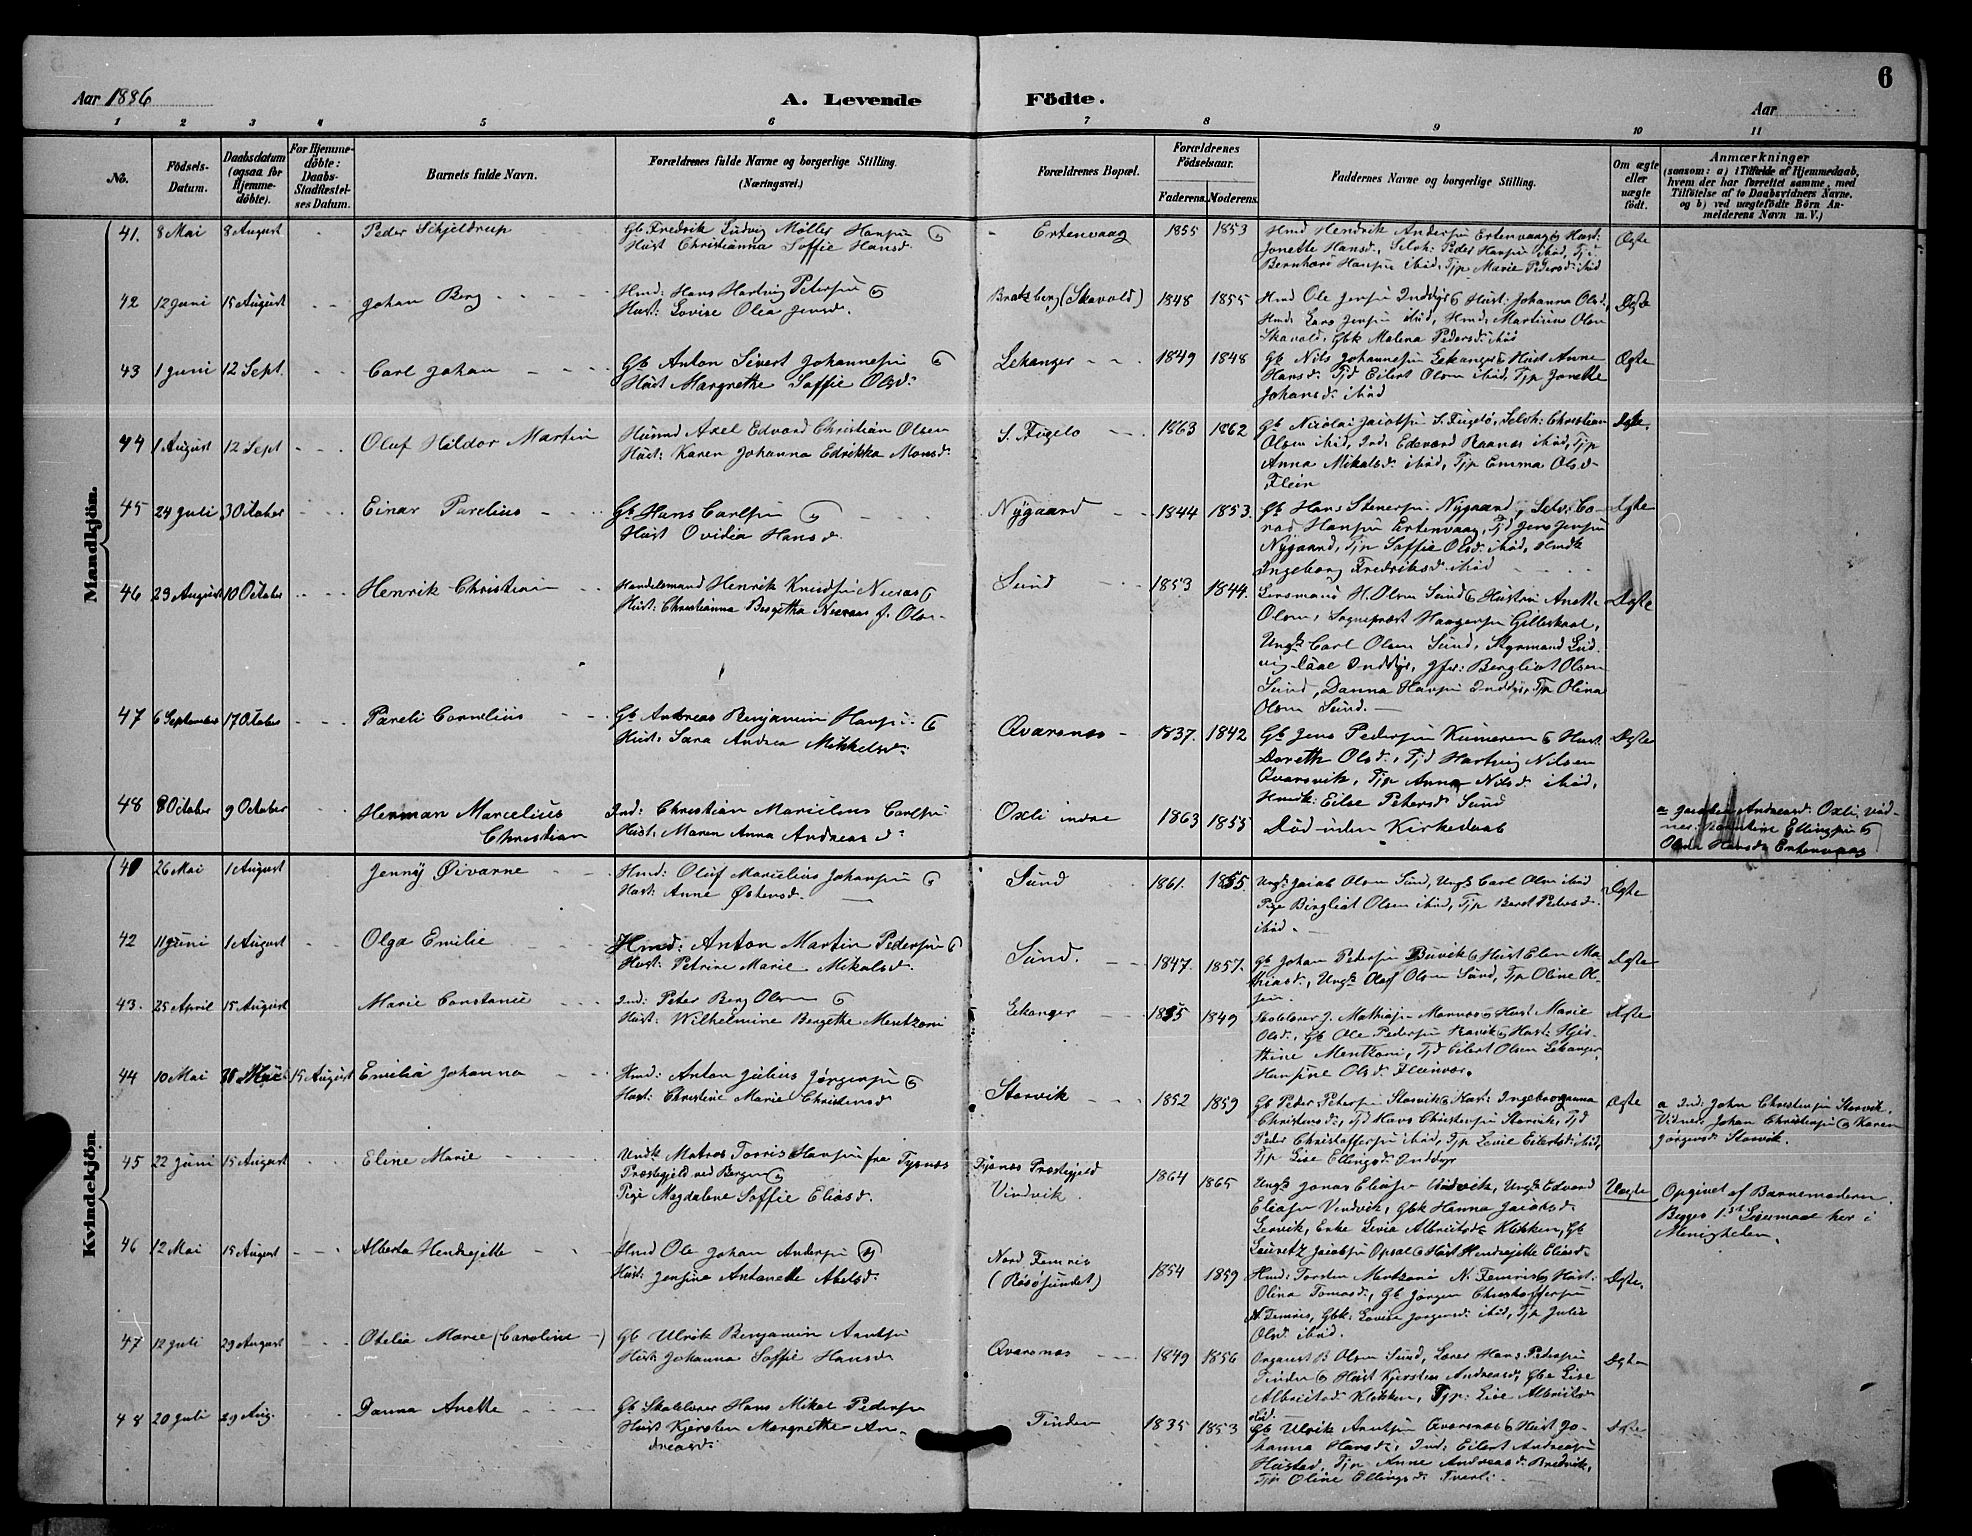 6
Aar 1886
A. Levende Födte.
Aar
1 2 3 4 5 6 7 8 9 10 11
No.
Födsels-Datum.
Daabsdatum (ogsaa for Hjemmedöbte).
For Hjemmedöbte: Daabs-Stadfæstelses Datum.
Barnets fulde Navn.
Forældrenes fulde Navne og borgerlige Stilling. (Næringsvei.)
Forældrenes Bopæl.
Forældrenes Födselsaar.
Faderens. Moderens.
Faddernes Navne og borgerlige Stilling.
Om ægte eller uægte födt.
Anmærkninger
(saasom: a) i Tilfælde af Hjemmedaab, hvem der har forrettet samme, med Tilföielse af to Daabsvidners Navne, og b) ved uægtefödte Börn Anmelderens Navn m. V.)
Mandkjön.
41. 8 Mai 8 August Peder Schjeldrup
Gb Fredrik Ludvig Møller Hansen og
Hust Christianna Soffie Hansd.
Ertenvaag 1855 1853
Hmd Hendrik Andersen Ertenvaag og Hust:
Jonette Hansd., Selvh: Peder Hansen ibid, Tj:
Bernhard Hansen ibid, Tjp Marie Pedersd: ibid
Ægte
42 12 Juni 15 August Johan Berg
Hmd: Hans Hartvig Petersen og
Hust: Lovise Olea Jensd.
Bratsberg (Skavold) 1848 1855
Hmd Ole Jensen Inddyr og Hust: Johanna Olsd,
Hmd: Lars Jensen ibid, Hmd: Martinus Olsen
Skavold, Gbk Malena Pedersd: ibid
Ægte
43 1 Juni 12 Sept. Carl Johan
Gb Anton Sivert Johannesen og
Hust Margrethe Soffie Olsd:
Lekanger 1849 1848
Gb Nils Johannesen Lekanger og Hust Anne
Hansd: Tjd Eilert Olsen ibid, Tjp Jonette
Johansd: ibid
Ægte
44 1 August 12 Sept Oluf Hildor Martin
Husmd Axel Edvard Christian Olsen
Hust: Karen Johanna Edrikka Monsd:
S. Fugelø 1863 1862
Gb Nicolai Jacobsen S. Fugelø, Selvh: Christian
Olsen ibid, Ind: Edevard Raanes ibid, Tjp
Anna Mikalsd: ibid, Tjp Emma Olsd.
Flein
Ægte.
45 24 Juli 3 October Einar Parelius
Gb Hans Carlsen og
Hust Ovidia Hansd.
Nygaard 1844 1853.
Gb Hans Stenersen Nygaard, Selv: Co-
rad Hansen Ertenvaag, Tjd Jens Jensen
Nygaard, Tjp Soffie Olsd: ibid, Hmdk
Ingeborg Fredriksd. ibid
Ægte
46 29 August 10 October Henrik Christian
Handelsmand Henrik Knudsen Neeraas og
Hust: Christianna Bergitha Neeraas f. Olsen
Sund 1853 1844.
Lensmand H. Olsen Sund og Hustru Anette
Olsen, Sognepræst Haagensen Gilleskaal,
Ungk Carl Olsen Sund, Styrmand Lud-
vig Caae Inddyr, Jfr: Bergliot Olsen
Sund, Danna Hansen Inddyr, Tjp Olina
Olsen Sund.
Ægte
47 6 September 17 October Pareli Cornelius
Gb Andreas Benjamin Hansen og
Hust. Sara Andrea Mikkelsd:
Qvarsnes 1837. 1842
Gb Jens Pedersen Kumeren og Hust.
Doreth Olsd:, Tjd Hartvig Nilsen
Qvarsvik, Tjp Anna Nilsd: ibid,
Hmdk: Else Petersd: Sund
Ægte
48 8 October 9 October Herman Marcelius
Christian
Ind: Christian Marcelius Carlsen
Hust: Maren Anna Andreasd:
Oxli indre 1863 1855
Død uden Kirkedaab
Andreasd: Oxli, Vid-
ner: Ellingsen og
Hansd: Ertenvaag
Kvindekjön.
41 26 Mai 1 August Jenny Øivarne
Hmd: Oluf Marcelius Johansen og
Hust: Anne Østensd.
Sund 1861. 1855.
Ungk: Jacob Olsen Sund, Ungk Carl Olsen ibid
Pige Bergliot Olsen ibid, Tjp Beret Petersd:
ibid.
Ægte
42 11 Juni 1 August Olga Emilie
Hmd: Anton Martin Pedersen og
Hust: Petrine Marie Mikalsd.
Sund. 1847. 1857.
Gb Johan Pedersen Buvik og Hust Elen Ma-
thiasd:, Ungk Olaf Olsen Sund, Tjp Oline Ol-
sen.
Ægte
43. 25 April 15 August Marie Constance
Ind: Peter Berg Olsen og
Hust: Wilhelmine Bergethe Mentzoni
Lekanger 1855 1849
Skolelærer J. Mathisen Mornes og Hust Marie
Olsd:, Gb Ole Pedersen Ravik og Hust: Kjer-
stine Mentzoni, Tjd Eilert Olsen Lekanger,
Hansine Olsd: Fleinvær.
Ægte
44 10 Mai 15 August Emilia Johanna
Hmd: Anton Julius Jørgensen og
Hust: Christine Marie Christensd
Storvik 1852 1859
Gb Peder Petersen Storvik og Hust: Ingeborganna
Christensd:, Tjd Hans Christensen Storvik, Tjd
Peder Christoffersen ibid, Tjp Lovise Eilertsd: ibid,
Tjp Lise Ellingsd: Inddyr
Ægte
a Ind: John Christensen Storvik.
Vidner: Johan Christensen og Karen
Jørgensd: Storvik.
45 22 Juni 15 August Eline Marie
Undk Matros Torris Hansen fra Tysnes
Præstegjeld ved Bergen og
Pige Magdalene Soffie Eliasd.
Tysnes Præstegjeld
Vindvik. 1864 1865
Ungk Jonas Eliasen Vindvik, Ungk Edvard
Eliasen Vindvik, Gbk Hanna Jacobsd.
Lervik, Enke Livia Albreitsd: Klokken, Gb
Lauretz Jacobsen Opsal og Hust Hendrejette Eliasd:
Uægte
Opgivet af Barnemoderen.
Begges 1ste Leiermaal her i
Menigheden.
46 12 Mai 15 August Alberta Hendrejette
Hmd Ole Johan Andersen og
Hust: Jensine Antonette Abelsd:
Nord Femris
(Røsøsundet) 1854 1859
Hmd: Torsten Mentzoni N. Femris og Hust:
Olina Tomasd:, Gb Jørgen Christoffersen
N. Femris, Gbk: Lovise Jørgensd: ibid, Tjp Julie
Olsd: ibid.
Ægte.
47 12 Juli 29 August Otelia Marie (Caroline)
Gb Ulrik Benjamin Arntsen
Hust: Johanna Soffie Hansd.
Qvarsnes 1849 1856
Organist B. Olsen Sund, Lærer Hans Pedersen
Tinden og Hust Kjersten Andreasd, Gbe Lise
Albreitsd: Klokken, Tjp: Lise Albreitsd
ibid.
Ægte
48 20 Juli 29 Aug. Danna Anette
Gb Skolelærer Hans Mikal Pedersen
Hust Kjersten Margrethe An-
dreasd:
Tinden 1835 1853
Gb Ulrik Arntsen Qvarsnes og Hust Jo-
hanna Hansd:, Ind: Eilert Andreasen
Hustad, Tjp Anne Andreasd: Bredvik,
Tjp Oline Ellingsd: Tverli.
Ægte